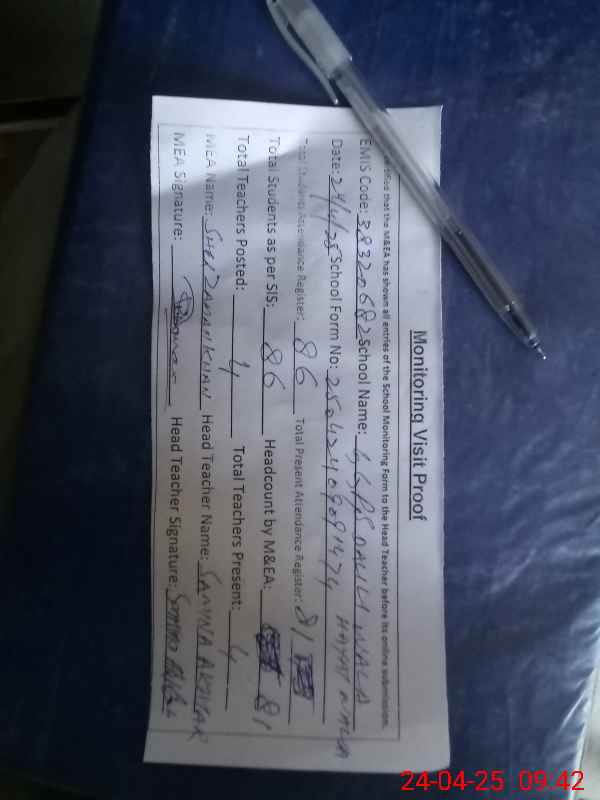 Monitoring Visit Proof
that the M&EA has shown all entries of the School Monitoring Form to the Head Teacher before its online submission.
EMIS Code: 38320682 School Name: GGPS DAULI WALA
HAYAT WALA
Date: 24/4/25 School Form No: 25042409091474
Total Students Attendance Register: 86 Total Present Attendance Register: 81
Total Students as per SIS: 86 Headcount by M&EA: 81
Total Teachers Posted: 4 Total Teachers Present: 4
MEA Name: SHER ZAMAN KHAN Head Teacher Name: SAMINA AKHTAR
MEA Signature: Head Teacher Signature:
24-04-25 09:42